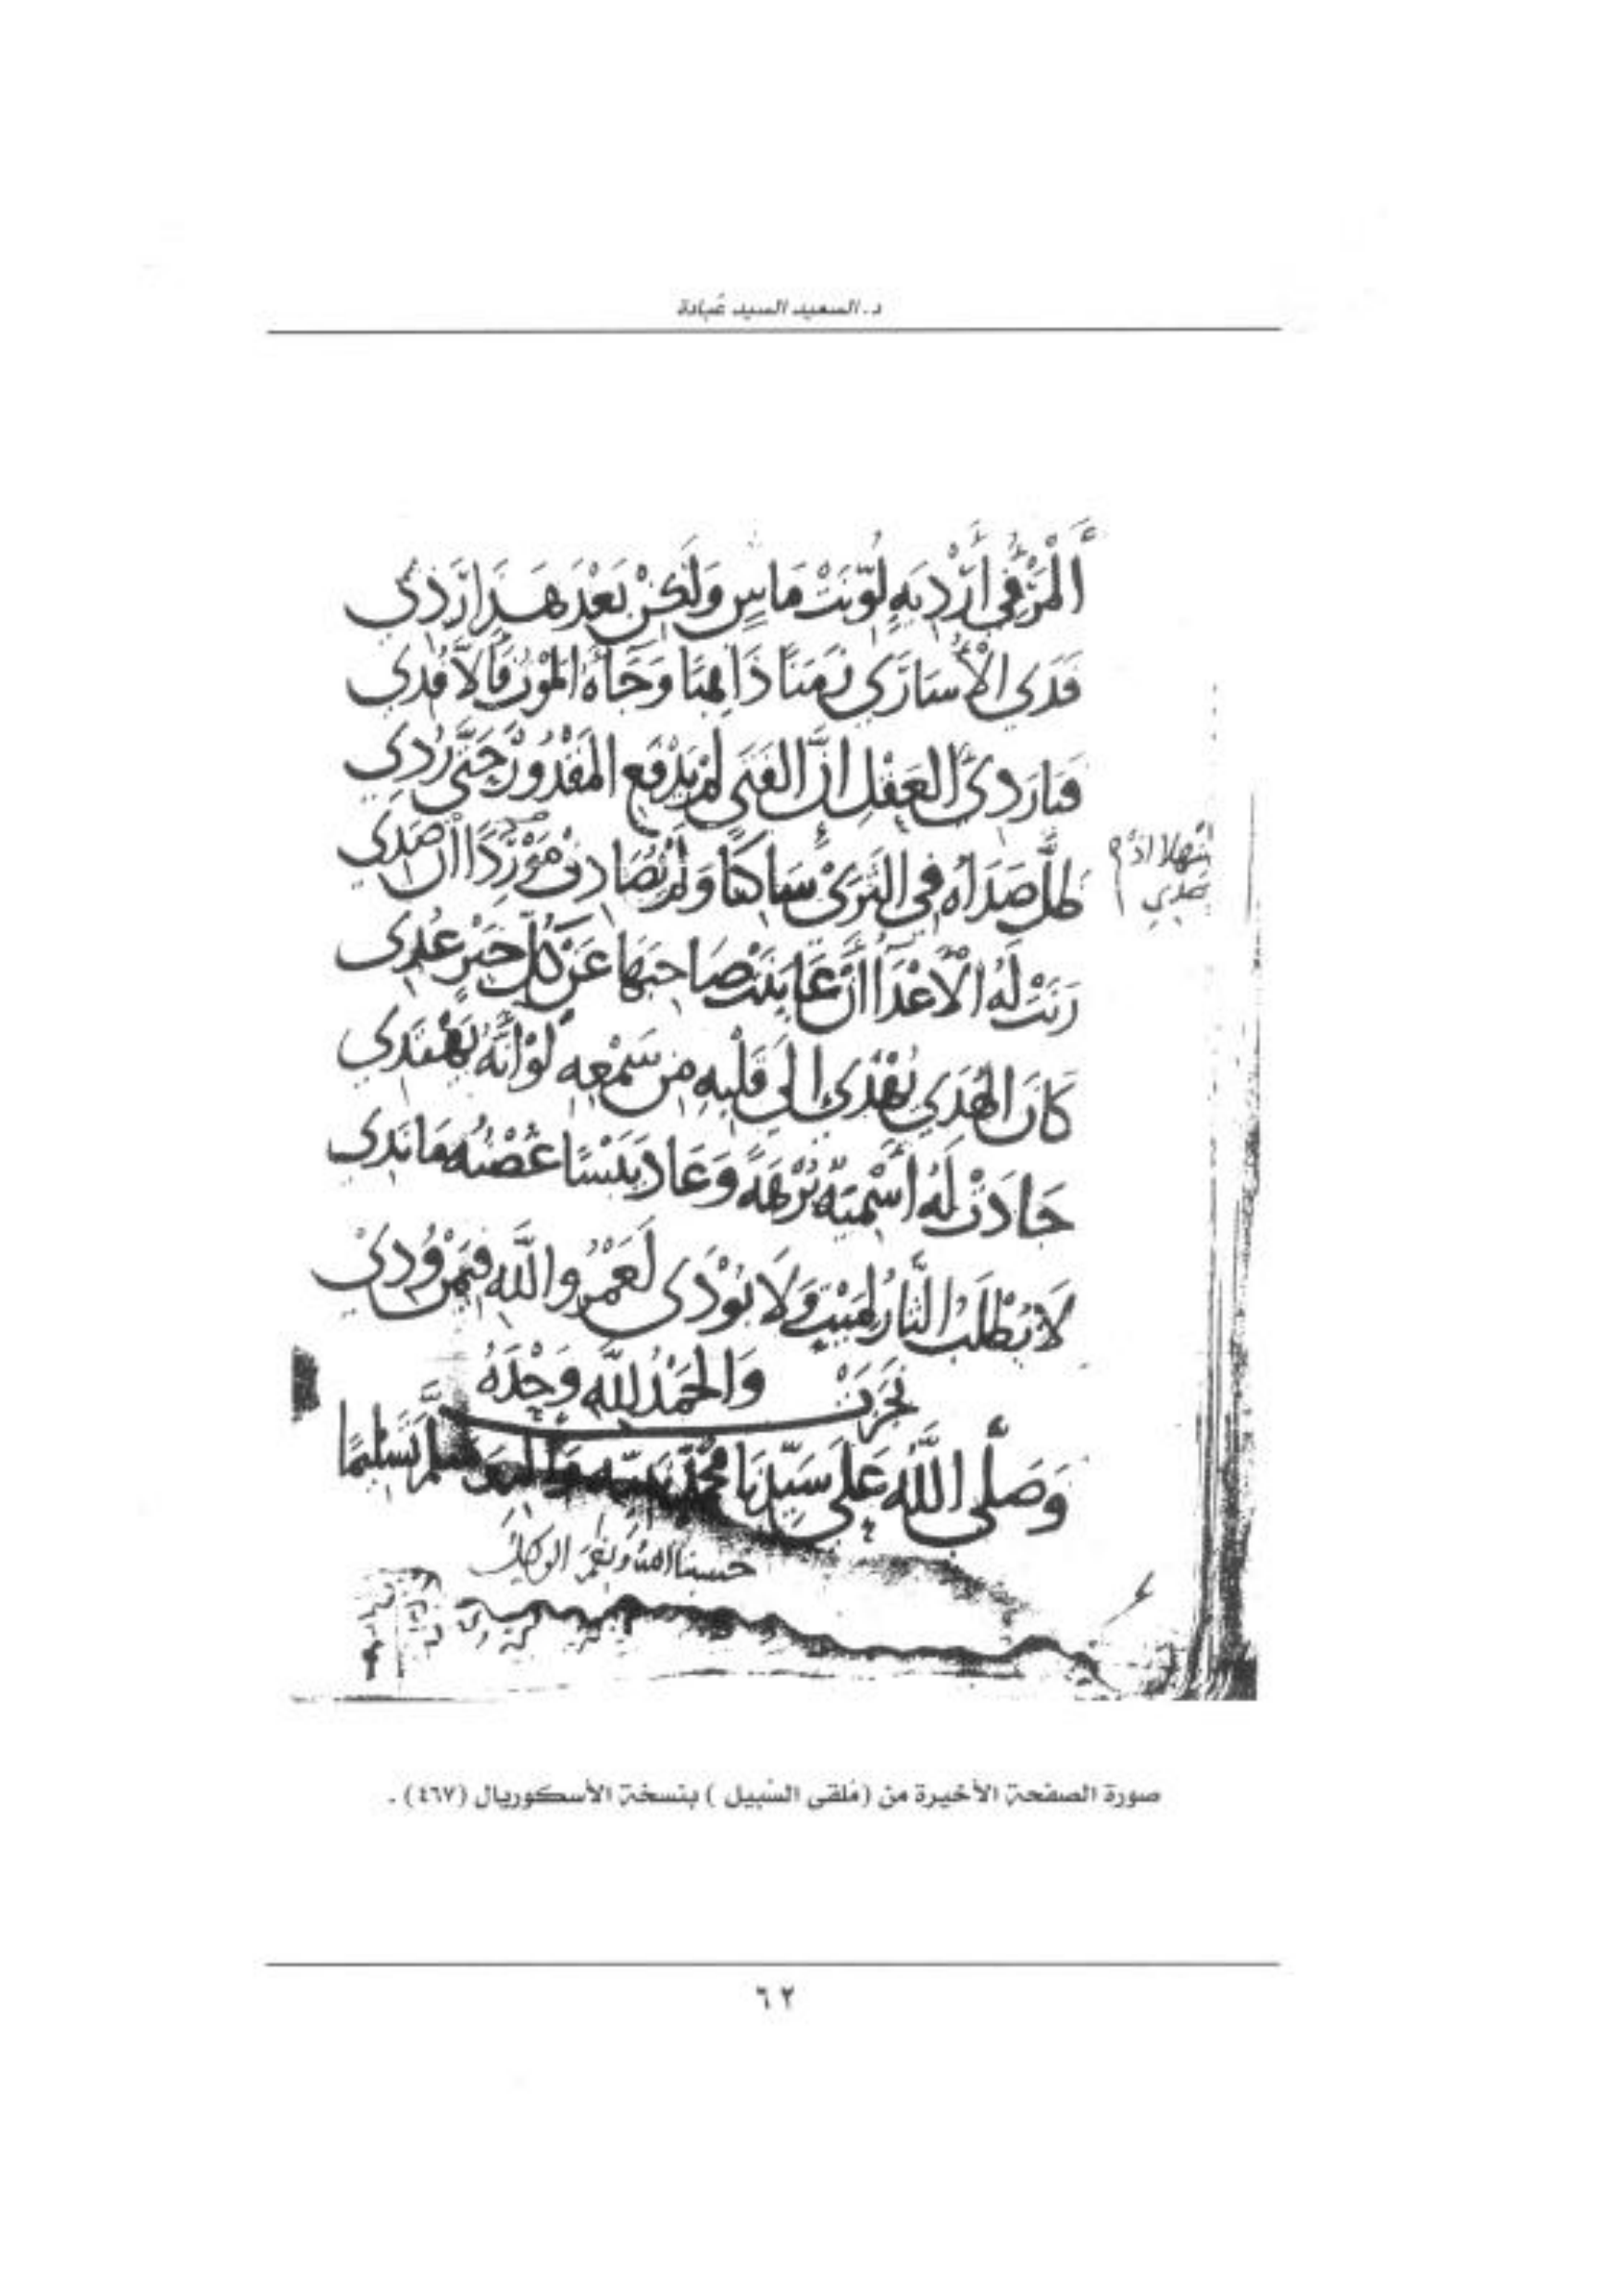 د. السعيد السيد عُبادة
المَرْءُ فِي أَرْدِيَةٍ لُوِّنَتْ مَاسٍ وَلَكِنْ بَعْدَ هَذَا رَدِي
فَدَى الأُسَارَى زَمَنًا ذَاهِبًا وَجَاءَهُ المَوْتُ فَأَلَّا فُدِي
فيا رَدِيَّ العَقْلِ إنَّ الفَتَى لَمْ يَدْفَعِ المَقْدُورَ حَتَّى رُدِي
ظلَّ صَدَاهُ فِي الثَّرَى سَاكنًا وَلَمْ يُصَادِفْ مَوْرِدًا أن صَدِي
صح
رَنَتْ لَهُ الأَعْدَاءُ أَنْ عَايَنَتْ صَاحِبَهَا عَنْ كُلِّ خَيْرٍ عُدِي
كَانَ الهُدَى يُهْدَى إِلَى قَلْبِهِ مِن سَمْعِهِ لَوْ أَنَّهُ يَهْتَدِي
جَادَتْ لَهُ أَسْمِيَةٌ بُرْهَةً وَعَادَ يَبْسًا غُصْنُهُ مَا نَدِي
لَا يُطْلَبُ الثَّارُ لِمَيْتٍ وَلَا يُودَى لَعَمْرُ واللَّهِ فِيمَنْ وُدِي
نَجَزَتْ وَالحَمْدُ لِلَّهِ وَحْدَهُ
وَصَلَّى اللَّهُ عَلَى سَيِّدِنَا مُحَمَّدٍ وسلَّمَ تَسْلِيمًا
حسبنا الله ونعم الوكيل
صورة الصفحة الأخيرة من (مُلقى السَّبيل) بنسخة الأسكوريال (٤٦٧).
٦٢